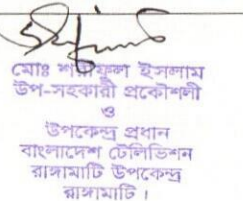 মোঃ শফিকুল ইসলাম
উপ-সহকারী প্রকৌশলী
ও
উপকেন্দ্র প্রধান
বাংলাদেশ টেলিভিশন
রাঙ্গামাটি উপকেন্দ্র
রাঙ্গামাটি।